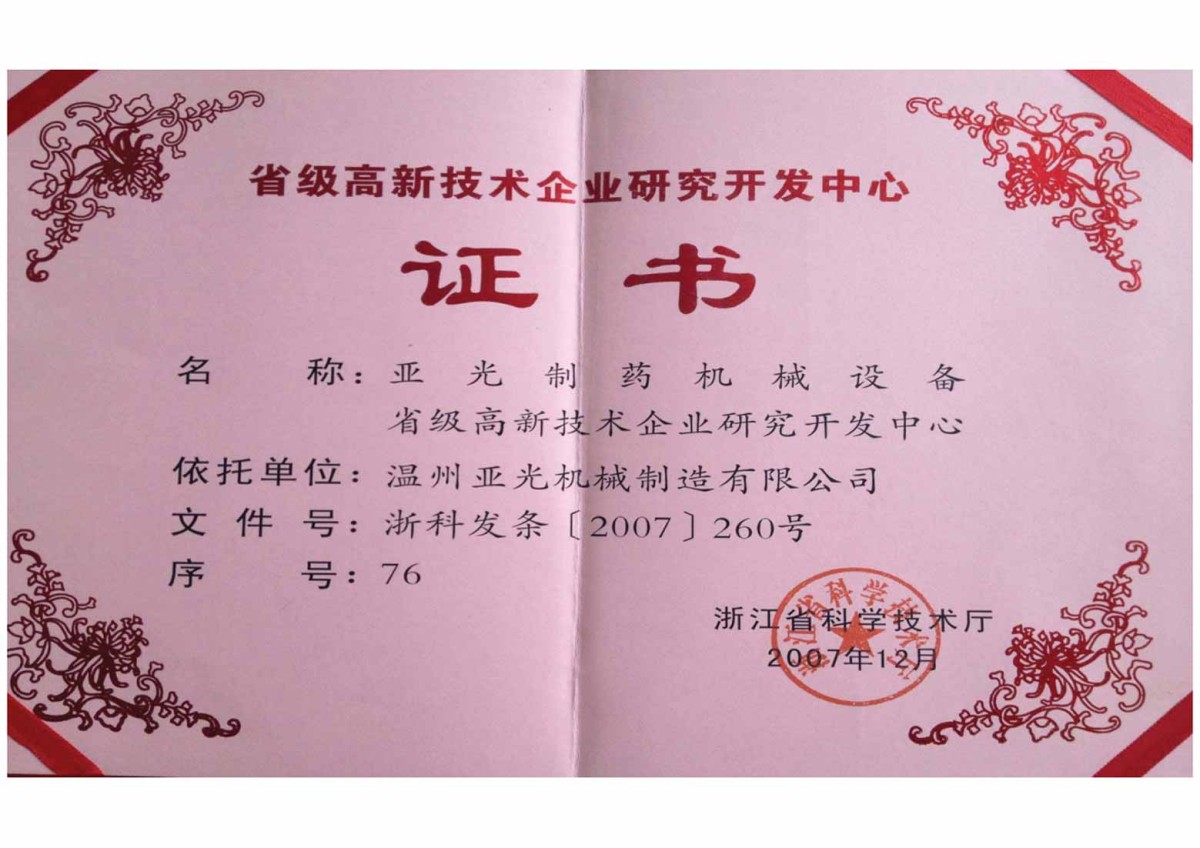 省级高新技术企业研究开发中心
证书
名称：亚光制药机械设备
省级高新技术企业研究开发中心
依托单位：温州亚光机械制造有限公司
文件号：浙科发条〔2007〕260号
序号：76
浙江省科学技术厅
2007年12月
浙江省科学技术厅